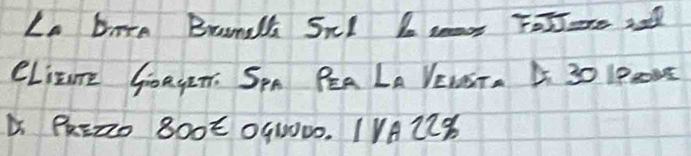 La Ditta Brunelli Srl emette Fattura sul
Cliente Giorgetti Spa Per La Vendita Di 30
Di Prezzo 800€ ognuno. IVA 22%